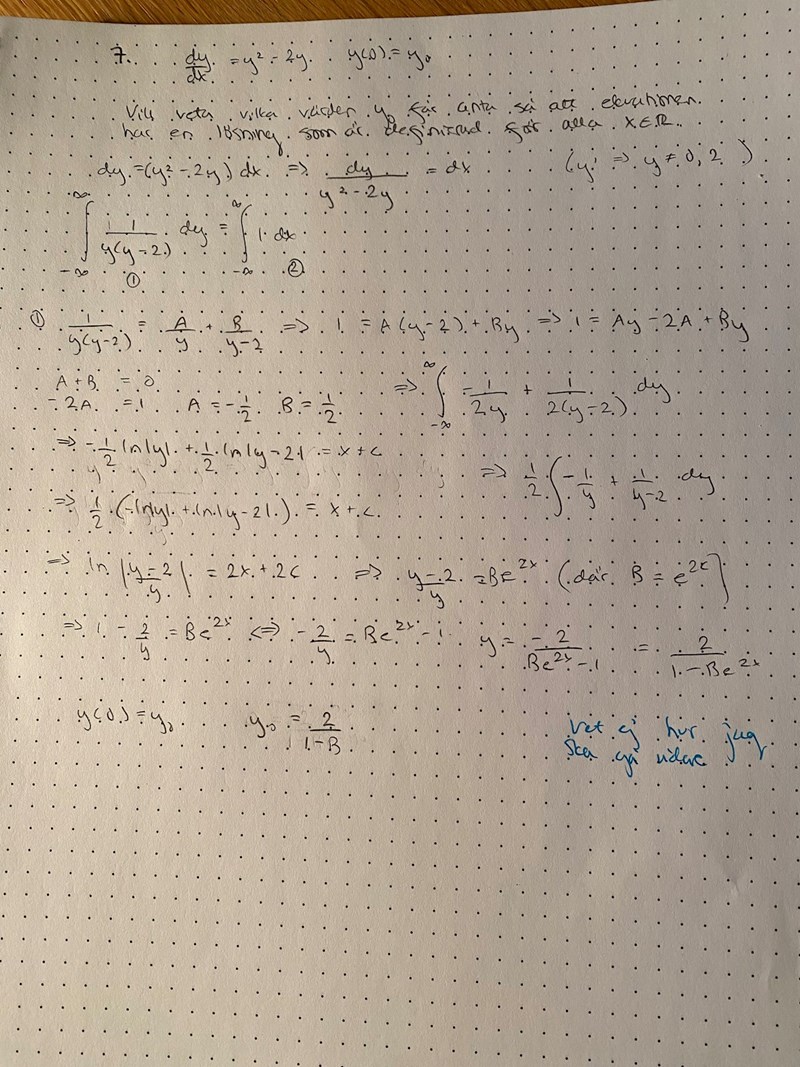 7. dy/dx = y² - 2y y(0) = y₀
Vill veta vilka värden y₀ får anta så att ekvationen
har en lösning som är definierad för alla x∈ℝ.
dy = (y² - 2y) dx ⇒ dy/(y² - 2y) = dx ( ⇒ y ≠ 0, 2 )
∫_{-∞}^{∞} 1/(y(y-2)) dy = ∫_{-∞}^{∞} 1 dx
① ②
① 1/(y(y-2)) = A/y + B/(y-2) ⇒ 1 = A(y-2) + By ⇒ 1 = Ay - 2A + By
A + B = 0
-2A = 1 A = -1/2 B = 1/2 ⇒ ∫_{-∞}^{∞} -1/(2y) + 1/(2(y-2)) dy
⇒ -1/2 ln|y| + 1/2 ln|y-2| = x + c ⇒ 1/2 ∫ -1/y + 1/(y-2) dy
⇒ 1/2 (-ln|y| + ln|y-2|) = x + c
⇒ ln |(y-2)/y| = 2x + 2c ⇒ (y-2)/y = Be^{2x} (där B = e^{2c})
⇒ 1 - 2/y = Be^{2x} ⇔ -2/y = Be^{2x} - 1 y = -2/(Be^{2x} - 1) = 2/(1 - Be^{2x})
y(0) = y₀ y₀ = 2/(1-B)
Vet ej hur jag
ska gå vidare